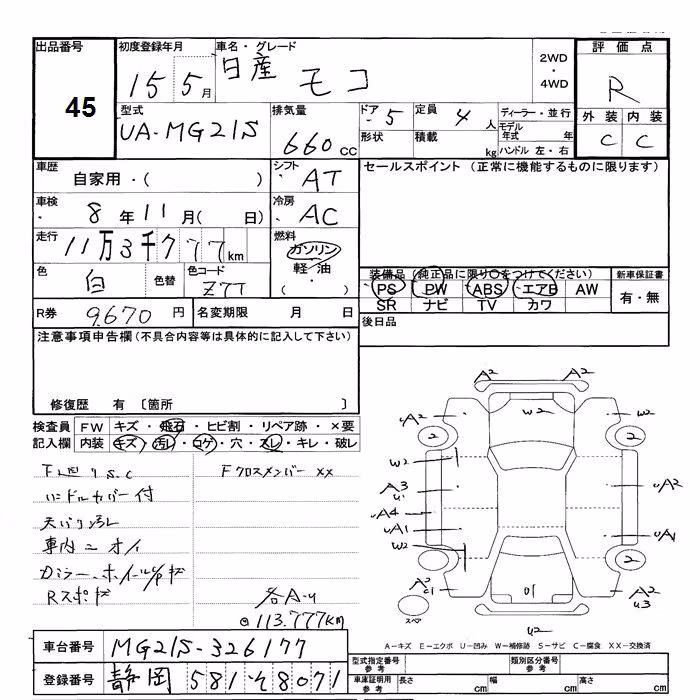 出品番号 初度登録年月 車名・グレード 2WD・4WD 評価点
45 15 5月 日産 モコ R
型式 排気量 ドア・形状 5 定員 4人 ディーラー・並行 外装 内装
UA-MG21S 660cc 積載 kg モデル年式 年 C C
ハンドル 左・右
車歴 自家用・( ) シフト AT セールスポイント (正常に機能するものに限ります)
車検 8年11月( 日) 冷房 AC
走行 11万3千777km 燃料 ガソリン 軽油 ・( )
色 白 色替 色コード Z7T 装備品 (純正品に限り○をつけてください) 新車保証書
PS PW ABS エアB AW 有・無
SR ナビ TV カワ
R券 9670円 名変期限 月 日 後日品
注意事項申告欄(不具合内容等は具体的に記入して下さい)
修復歴 有 〔箇所 〕
検査員記入欄 FW キズ・飛石・ヒビ割・リペア跡・×要
内装 キズ・汚レ・コゲ・穴・スレ・キレ・破レ
Fクロスメンバー XX
ハンドルカバー付
天バリ汚レ
車内ニオイ
各A-U
113.777km
A2 A2
A2 W2 W2
2 2
W2
A3 U1 A2
A4
A1 A1
W2 2
A2 U1 01 A2 U3
スペア
U2
A-キズ E-エクボ U-凹み W-補修跡 S-サビ C-腐食 XX-交換済
車台番号 MG21S-326177
登録番号 静岡 581 そ 8071
型式指定番号 参考 類別区分番号 参考
車庫証明用 参考 長さ cm 幅 cm 高さ cm